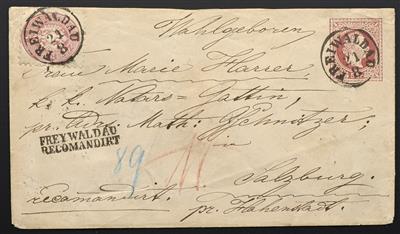 FREIWALDAU
24
8
FREIWALDAU
8
Wahlgeboren
Marie Harrer
k. k. Gattin,
pr. Adr. Math:
in
FREYWALDAU
RECOMANDIRT
89
Salzburg.
recomandirt.
pr. Hohenstadt.